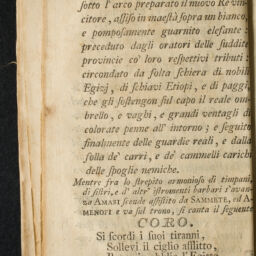 sotto l'arco preparato il nuovo Re vin-
citore, assiso in maestà sopra un bianco,
e pomposamente guarnito elefante:
preceduto dagli oratori delle suddite
provincie co' loro respettivi tributi:
circondato da folta schiera di nobili
Egizj, di schiavi Etiopi, e di paggi,
che gli sostengon sul capo il reale om-
brello, e vaghi, e grandi ventagli di
colorate penne all' intorno; e seguito
finalmente delle guardie reali, e dalla
folla de' carri, e de' cammelli carichi
delle spoglie nemiche.
Mentre fra lo strepito armonioso di timpani,
di sistri, e d' altr' istromenti barbari s'avan-
za AMASI scende assistito da SAMMETE, ed A-
MENOFI e va sul trono, si canta il seguente
CORO.
Si scordi i suoi tiranni,
Sollevi il ciglio afflitto,